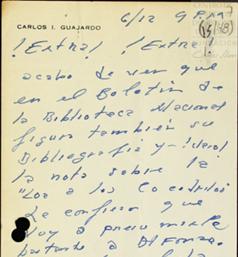 CARLOS I. GUAJARDO
6/12 9 P.M.
¡Extra! ¡Extra!
acabo de ver que
en el Boletín de
la Biblioteca Nacional
figura también su
Bibliografía y
la nota sobre la
"Loa a los Cocodrilos
Le confieso que
voy a presumirle
bastante a Alfonso.